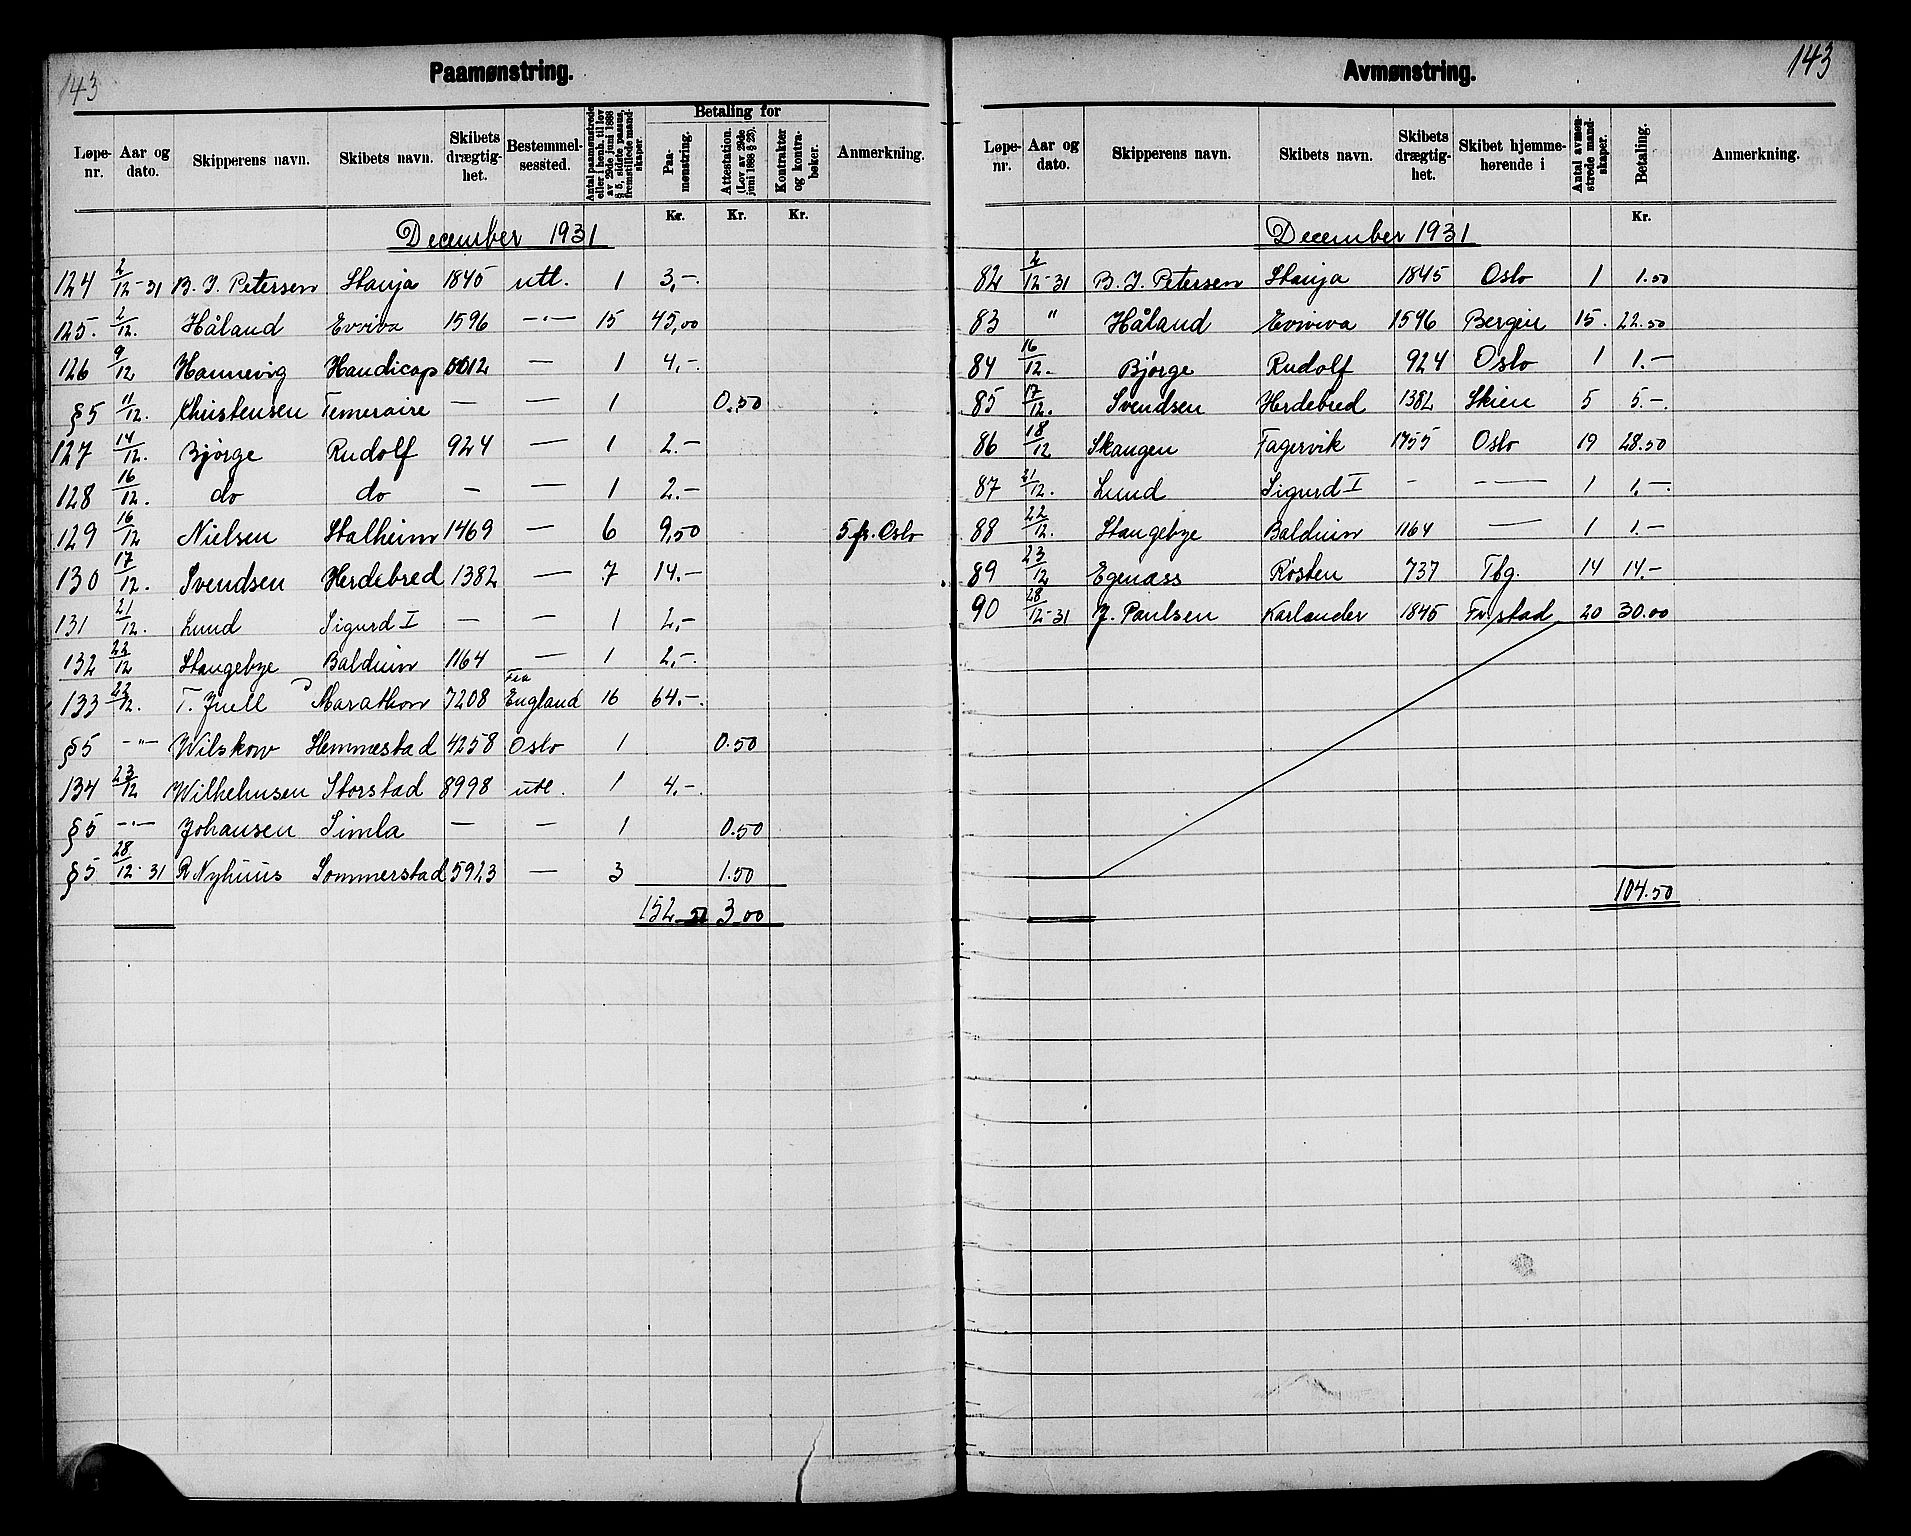 143
Paamønstring.
Løpe-nr. Aar og dato. Skipperens navn. Skibets navn. Skibets drægtig-het. Bestemmel-sessted. Antal paamønstrede eller i henh. til lov av 29de juni 1888 § 5, sidste passus, fremstillede mand-skaper. Betaling for Paa-mønstring. Attestation. (Lov av 29de juni 1888 § 25). Kontrakter og kontra-bøker. Anmerkning.
Kr. Kr. Kr.
December 1931
124 2/12-31 B. J. Petersen Stanja 1845 utl. 1 3,-
125. 2/12. Håland Evviva 1596 -"- 15 45,00
126 9/12 Hannevig Handicap 5012 — 1 4,-
§5 11/12. Christensen Temeraire — — 1 0.50
127 14/12. Bjørge Rudolf 924 — 1 2.-
128 16/12. do do — — 1 2.-
129 16/12 Nielsen Stalheim 1469 — 6 9,50 5 fr. Oslo
130 17/12. Svendsen Herdebred 1382 — 7 14.-
131 21/12. Lund Sigurd I — — 1 2,-
132 22/12 Stangebye Balduin 1164 — 1 2,-
133 22/12. T. Juell Marathon 7208 Fra England 16 64.-
§5 -"- Wilskow Hemmestad 4258 Oslo 1 0.50
134 23/12 Wilhelmsen Storstad 8998 utl. 1 4.-
§5 -"- Johansen Simla — — 1 0.50
§5 28/12-31 R Nyhuus Sommerstad 5923 — 3 1.50
152 50 3,00
143
Avmønstring.
Løpe-nr. Aar og dato. Skipperens navn. Skibets navn. Skibets drægtig-het. Skibet hjemme-hørende i Antal avmøn-strede mand-skaper. Betaling. Anmerkning.
Kr.
December 1931
82 2/12-31 B. J. Petersen Stanja 1845 Oslo 1 1.50
83 " Håland Evviva 1596 Bergen 15. 22.50
84 16/12. Bjørge Rudolf 924 Oslo 1 1.—
85 17/12. Svendsen Herdebred 1382 Skien 5 5.-
86 18/12 Skaugen Fagervik 1755 Oslo 19 28.50
87 21/12. Lund Sigurd I - -— 1 1.-
88 22/12. Stangebye Balduin 1164 — 1 1.-
89 23/12 Egenæss Røsten 737 Tbg. 14 14.-
90 28/12-31 J. Paulsen Karlander 1845 Fr.stad 20 30.00
104.50